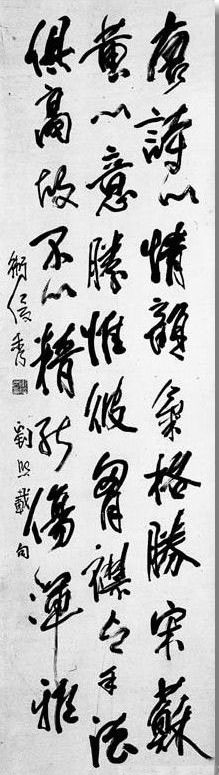 唐詩以情韻氣格勝宋蘇
黃以意勝惟彼胸襟與手法
俱高故不以精能傷渾雅
劉熙載句